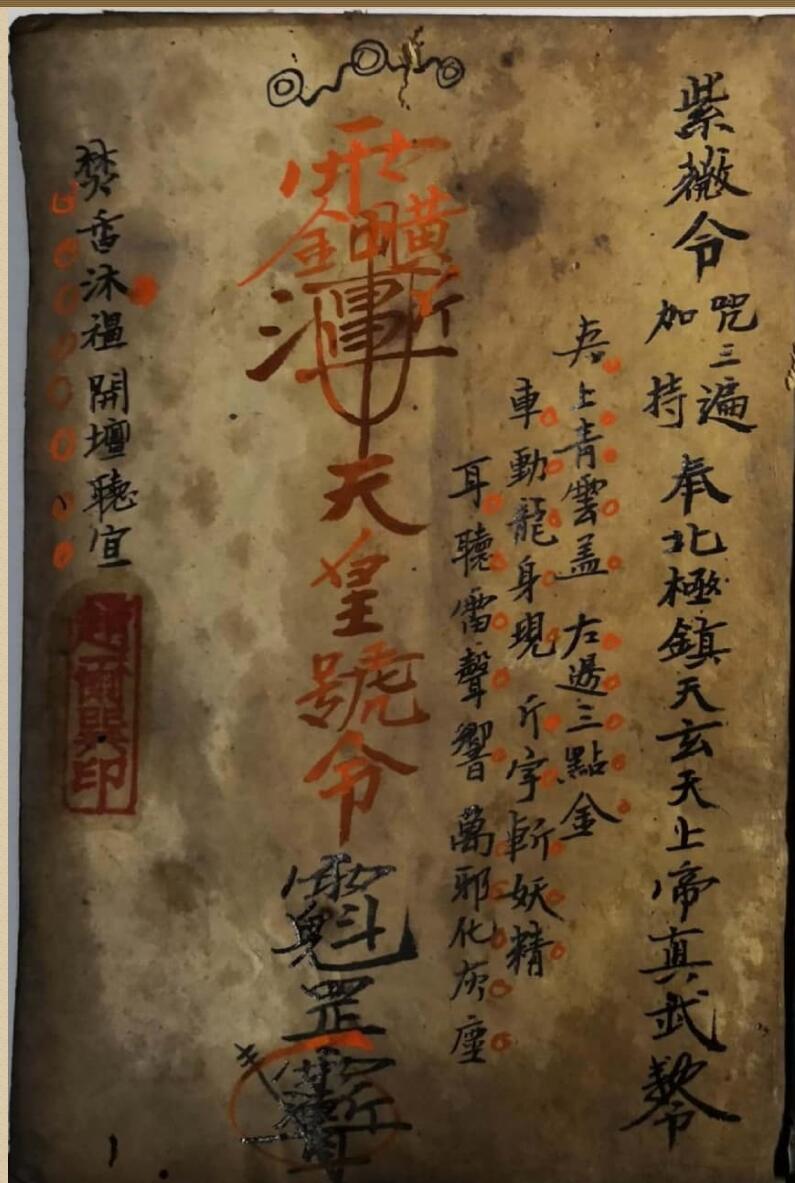 紫薇令
咒三遍
加持
奉北極鎮天玄天上帝真武
上青雲盖 左邊三點金
車動龍身現 斤字斬妖精
耳聽雷聲響 萬邪化灰塵
天皇號令
罡
焚香沐 開壇聽宣
趙爾巽印